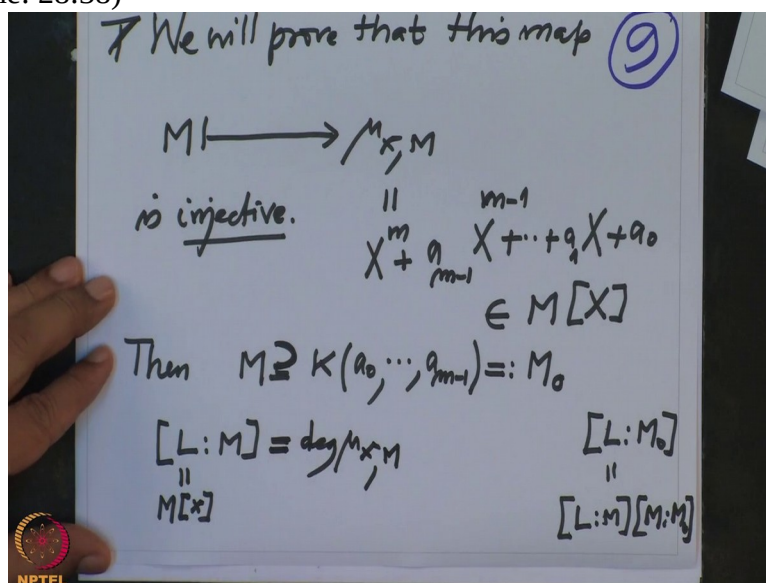 We will prove that this map
9
M ⟼ μ_{x,M}
is injective.
||
X^m + a_{m-1} X^{m-1} + ... + a_1 X + a_0
∈ M[X]
Then M ⊇ K(a_0, ..., a_{m-1}) =: M_0
[L:M] = deg μ_{x,M}
||
M[x]
[L:M_0]
||
[L:M][M:M_0]
NPTEL